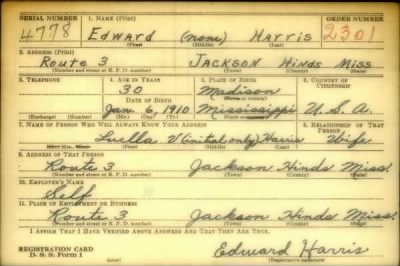 SERIAL NUMBER 1. NAME (Print) ORDER NUMBER
4778 EDWARD (none) HARRIS 2301
(First) (Middle) (Last)
2. ADDRESS (Print)
ROUTE 3 JACKSON HINDS MISS
(Number and street or R. F. D. number) (Town) (County) (State)
3. TELEPHONE 4. AGE IN YEARS 5. PLACE OF BIRTH 6. COUNTRY OF CITIZENSHIP
30 Madison
DATE OF BIRTH (Town or county)
Jan. 6, 1910 Mississippi U.S.A.
(Exchange) (Number) (Mo.) (Day) (Yr.) (State or country)
7. NAME OF PERSON WHO WILL ALWAYS KNOW YOUR ADDRESS 8. RELATIONSHIP OF THAT PERSON
Luella V (initial only) Harris Wife
(Mr., Mrs., Miss) (First) (Middle) (Last)
9. ADDRESS OF THAT PERSON
Route 3 Jackson Hinds Miss.
(Number and street or R. F. D. number) (Town) (County) (State)
10. EMPLOYER'S NAME
Self
11. PLACE OF EMPLOYMENT OR BUSINESS
Route 3 Jackson Hinds Miss.
(Number and street or R. F. D. number) (Town) (County) (State)
I AFFIRM THAT I HAVE VERIFIED ABOVE ANSWERS AND THAT THEY ARE TRUE.
REGISTRATION CARD Edward Harris
D. S. S. Form 1 (over) (Registrant's signature)